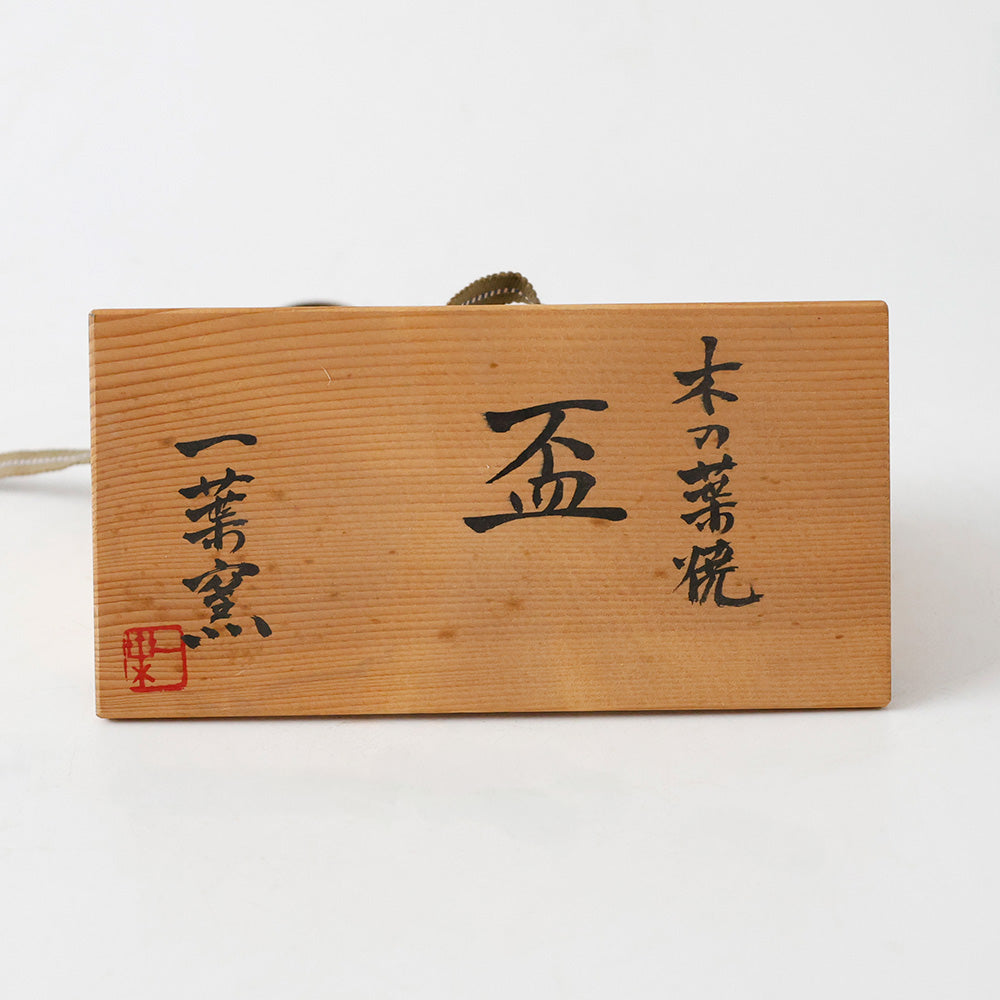 木の葉焼
盃
一葉窯
一葉